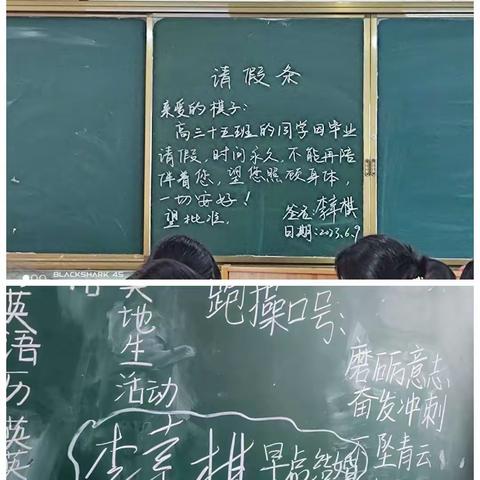 请假条
亲爱的棋子:
高三十五班的同学因毕业
请假,时间永久,不能再陪
伴着您,望您照顾身体,
一切安好!
望批准。
签名:李章棋
日期:2023.6.9
BLACKSHARK 4S
英语历英英
地生
活动
跑操口号:
磨砺意志
奋发冲刺
坠青云
李章棋 早点结婚